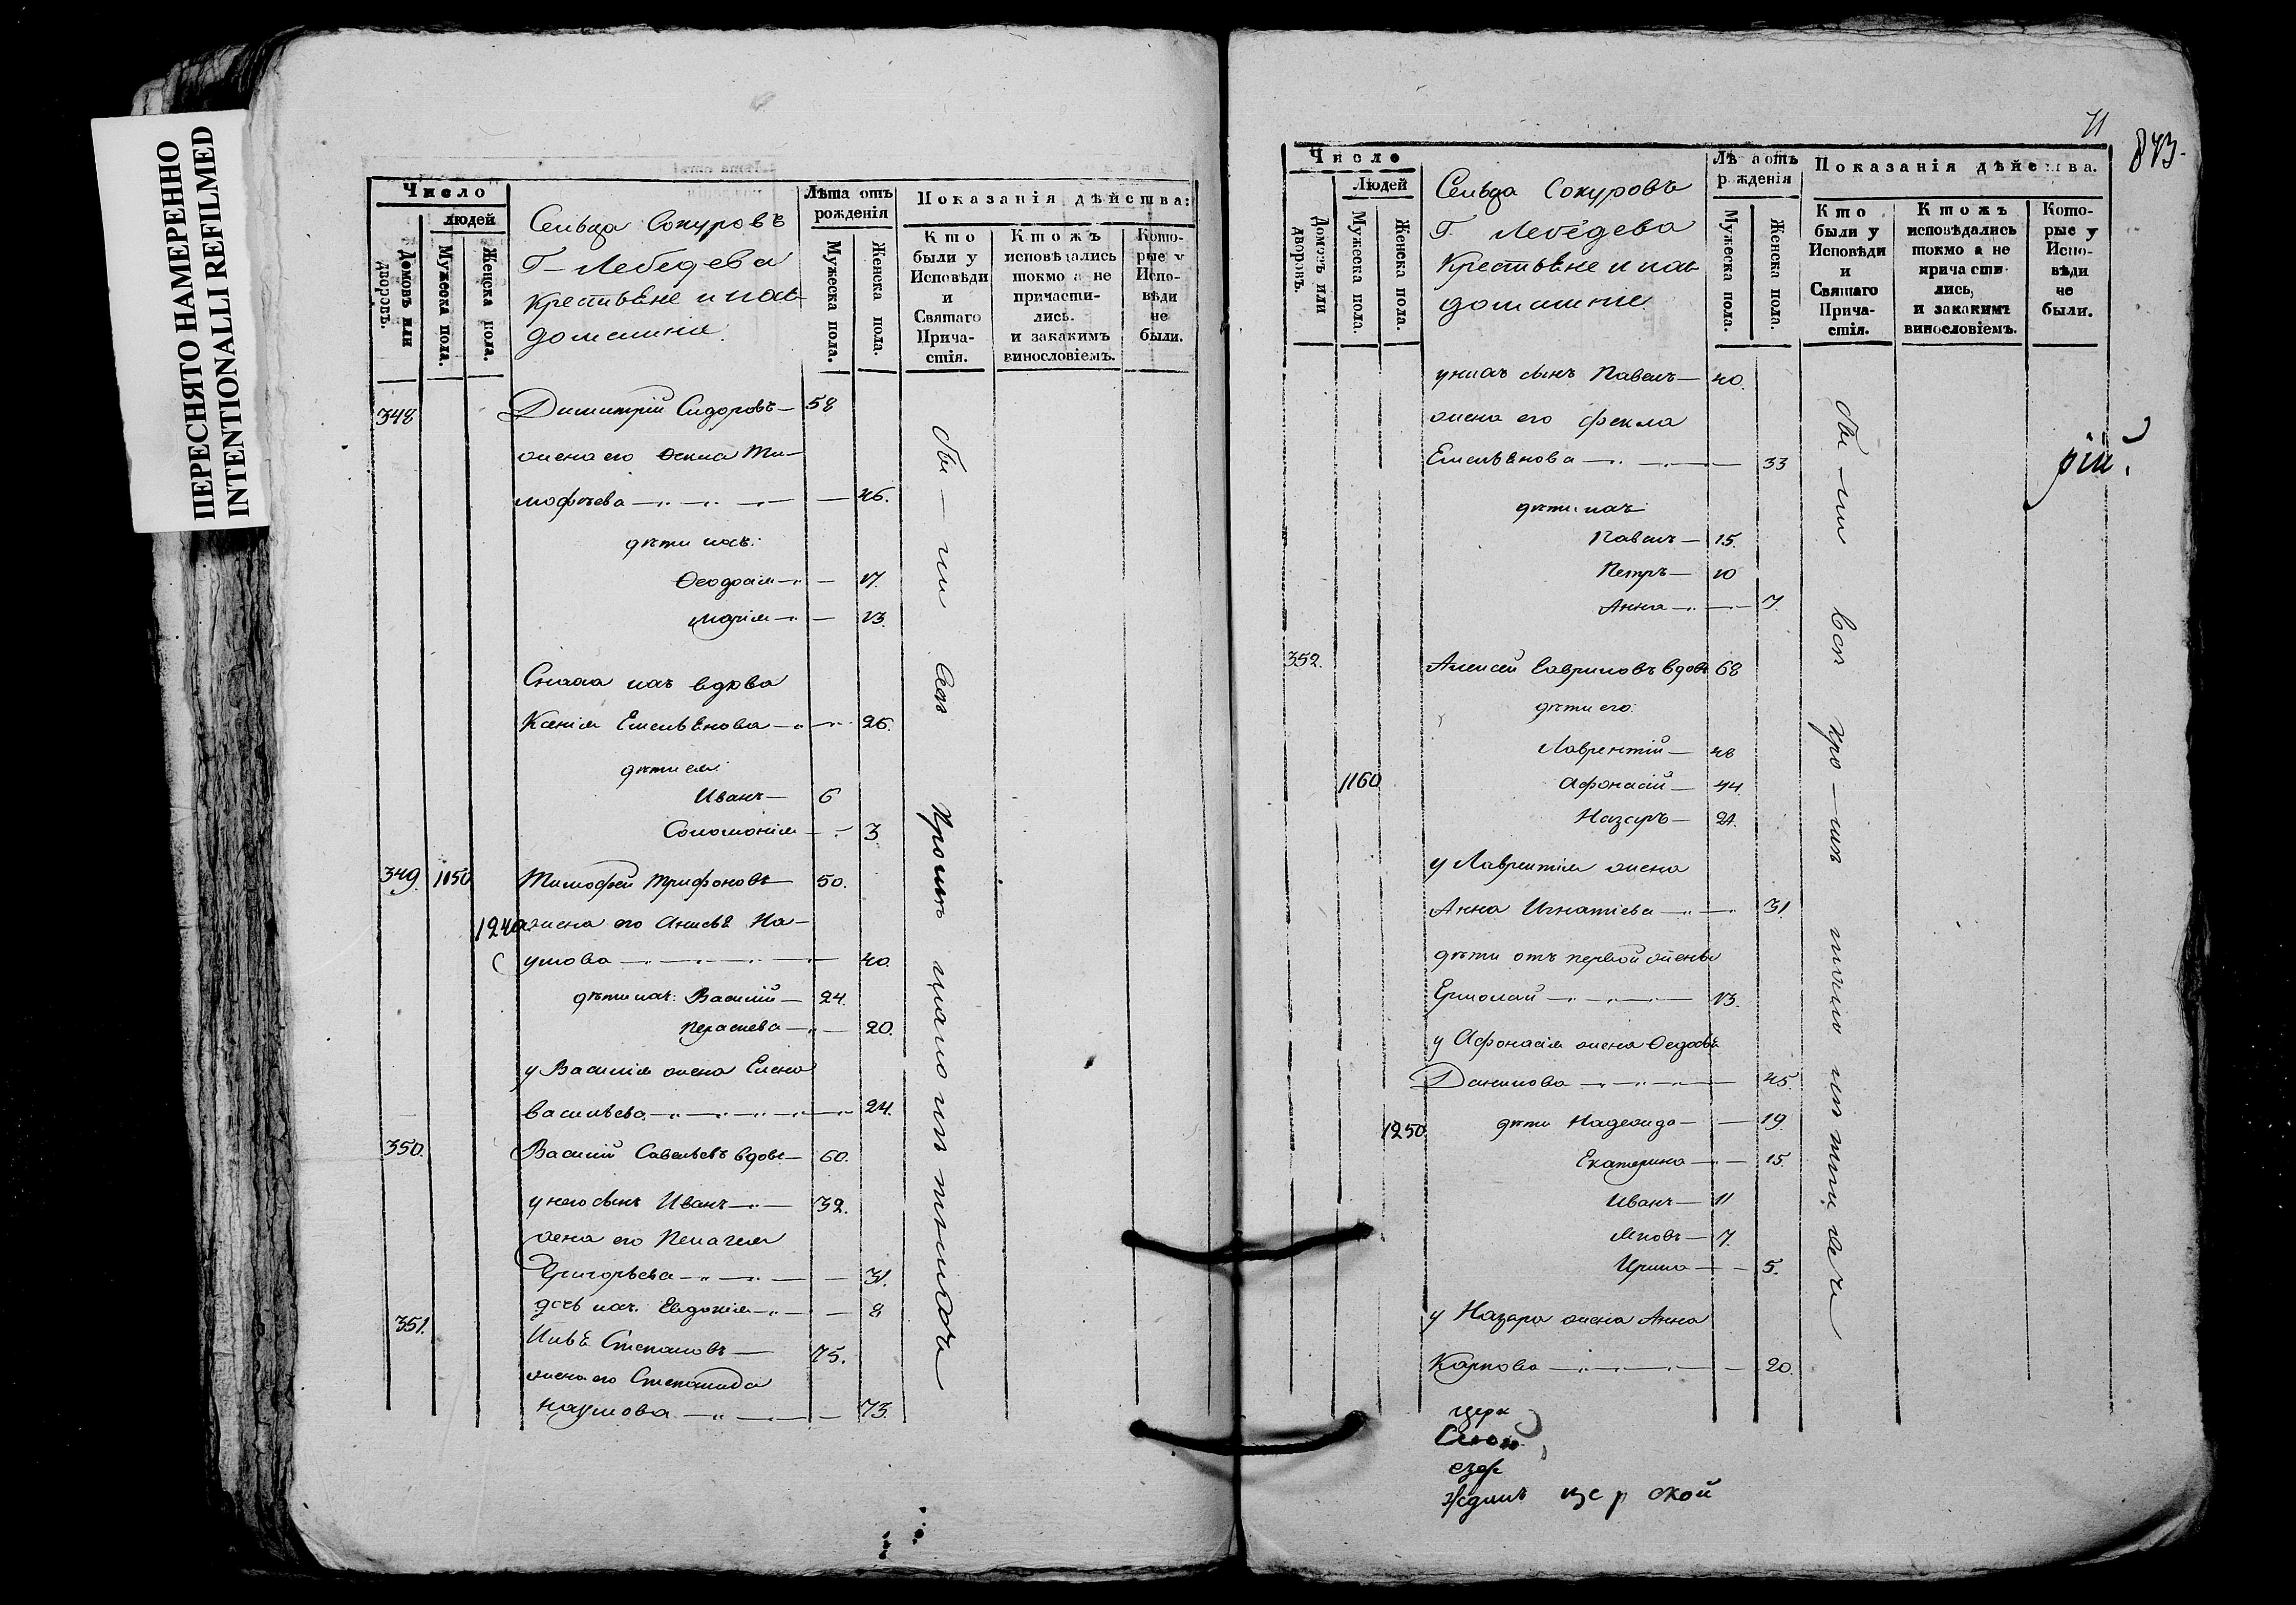 ПЕРЕСНЯТО НАМЕРЕННО
INTENTIONALLI REFILMED
Число
людей
Домовъ или дворовъ.
Мужеска пола.
Женска пола.
Сельца Сокуровъ
Г- Лебедева
крестьяне и ихъ
домашніе.
Лѣта отъ рожденія
Мужеска пола.
Женска пола.
Показанія дѣйства:
Кто были у Исповѣди и Святаго Причастія.
Ктожъ исповѣдались токмо а не причастились. и закакимъ винословіемъ.
Которые у Исповѣди не были.
348 Димитрій Сидоровъ — 58
жена его Ѳекла Ти-
мофѣева — 46.
дѣти ихъ:
Ѳеодосія — 17.
Марія — 13.
Сноха ихъ вдова
Ксенія Емельянова — 26.
дѣти ея:
Иванъ — 6
Соломонія — 3.
349. 1150 Тимофей Трифоновъ 50.
1240 жена его Анисья На-
умова — 40.
дѣти ихъ: Василій — 24.
Парасева — 20.
у Василія жена Елена
Васильева — 24.
350. Василій Савельевъ вдовъ — 60.
у него сынъ Иванъ — 32.
жена его Пелагея
Григорьева — 31.
дочь ихъ Евдокія — 8
351. Илья Степановъ — 75.
жена его Степанида
Наумова — 73.
бы — ли всѣ Кромѣ
71
843.
Число
Людей
Домовъ или дворовъ.
Мужеска пола.
Женска пола.
Сельца Сокуровъ
Г. Лебедева
Крестьяне и ихъ
домашніе.
Лѣ а отъ рожденія
Мужеска пола.
Женска пола.
Показанія дѣйства.
Кто были у Исповѣди и Святаго Причастія.
Ктожъ исповѣдались токмо а не причастились, и закакимъ винословіемъ.
Которые у Исповѣди не были.
у нихъ сынъ Павелъ — 40.
жена его Фекла
Емельянова — 33
дѣти ихъ
Павелъ — 15.
Петръ — 10
Анна — 7.
352. Алексей Гавриловъ вдовъ 68
дѣти его:
Лаврентій — 48
1160 Афонасій — 44
Назаръ — 21.
у Лаврентія жена
Анна Игнатіева — 31.
дѣти отъ первой жены
Ермолай — 13.
у Афонасія жена Ѳедосья
Данилова — 45.
1250. дѣти Надежда — 19.
Екатерина — 15.
Иванъ — 11
Яковъ — 7.
Ирина — 5.
у Назара жена Анна
Карпова — 20.
бы — ли всѣ кро — мѣ
рій.
церк